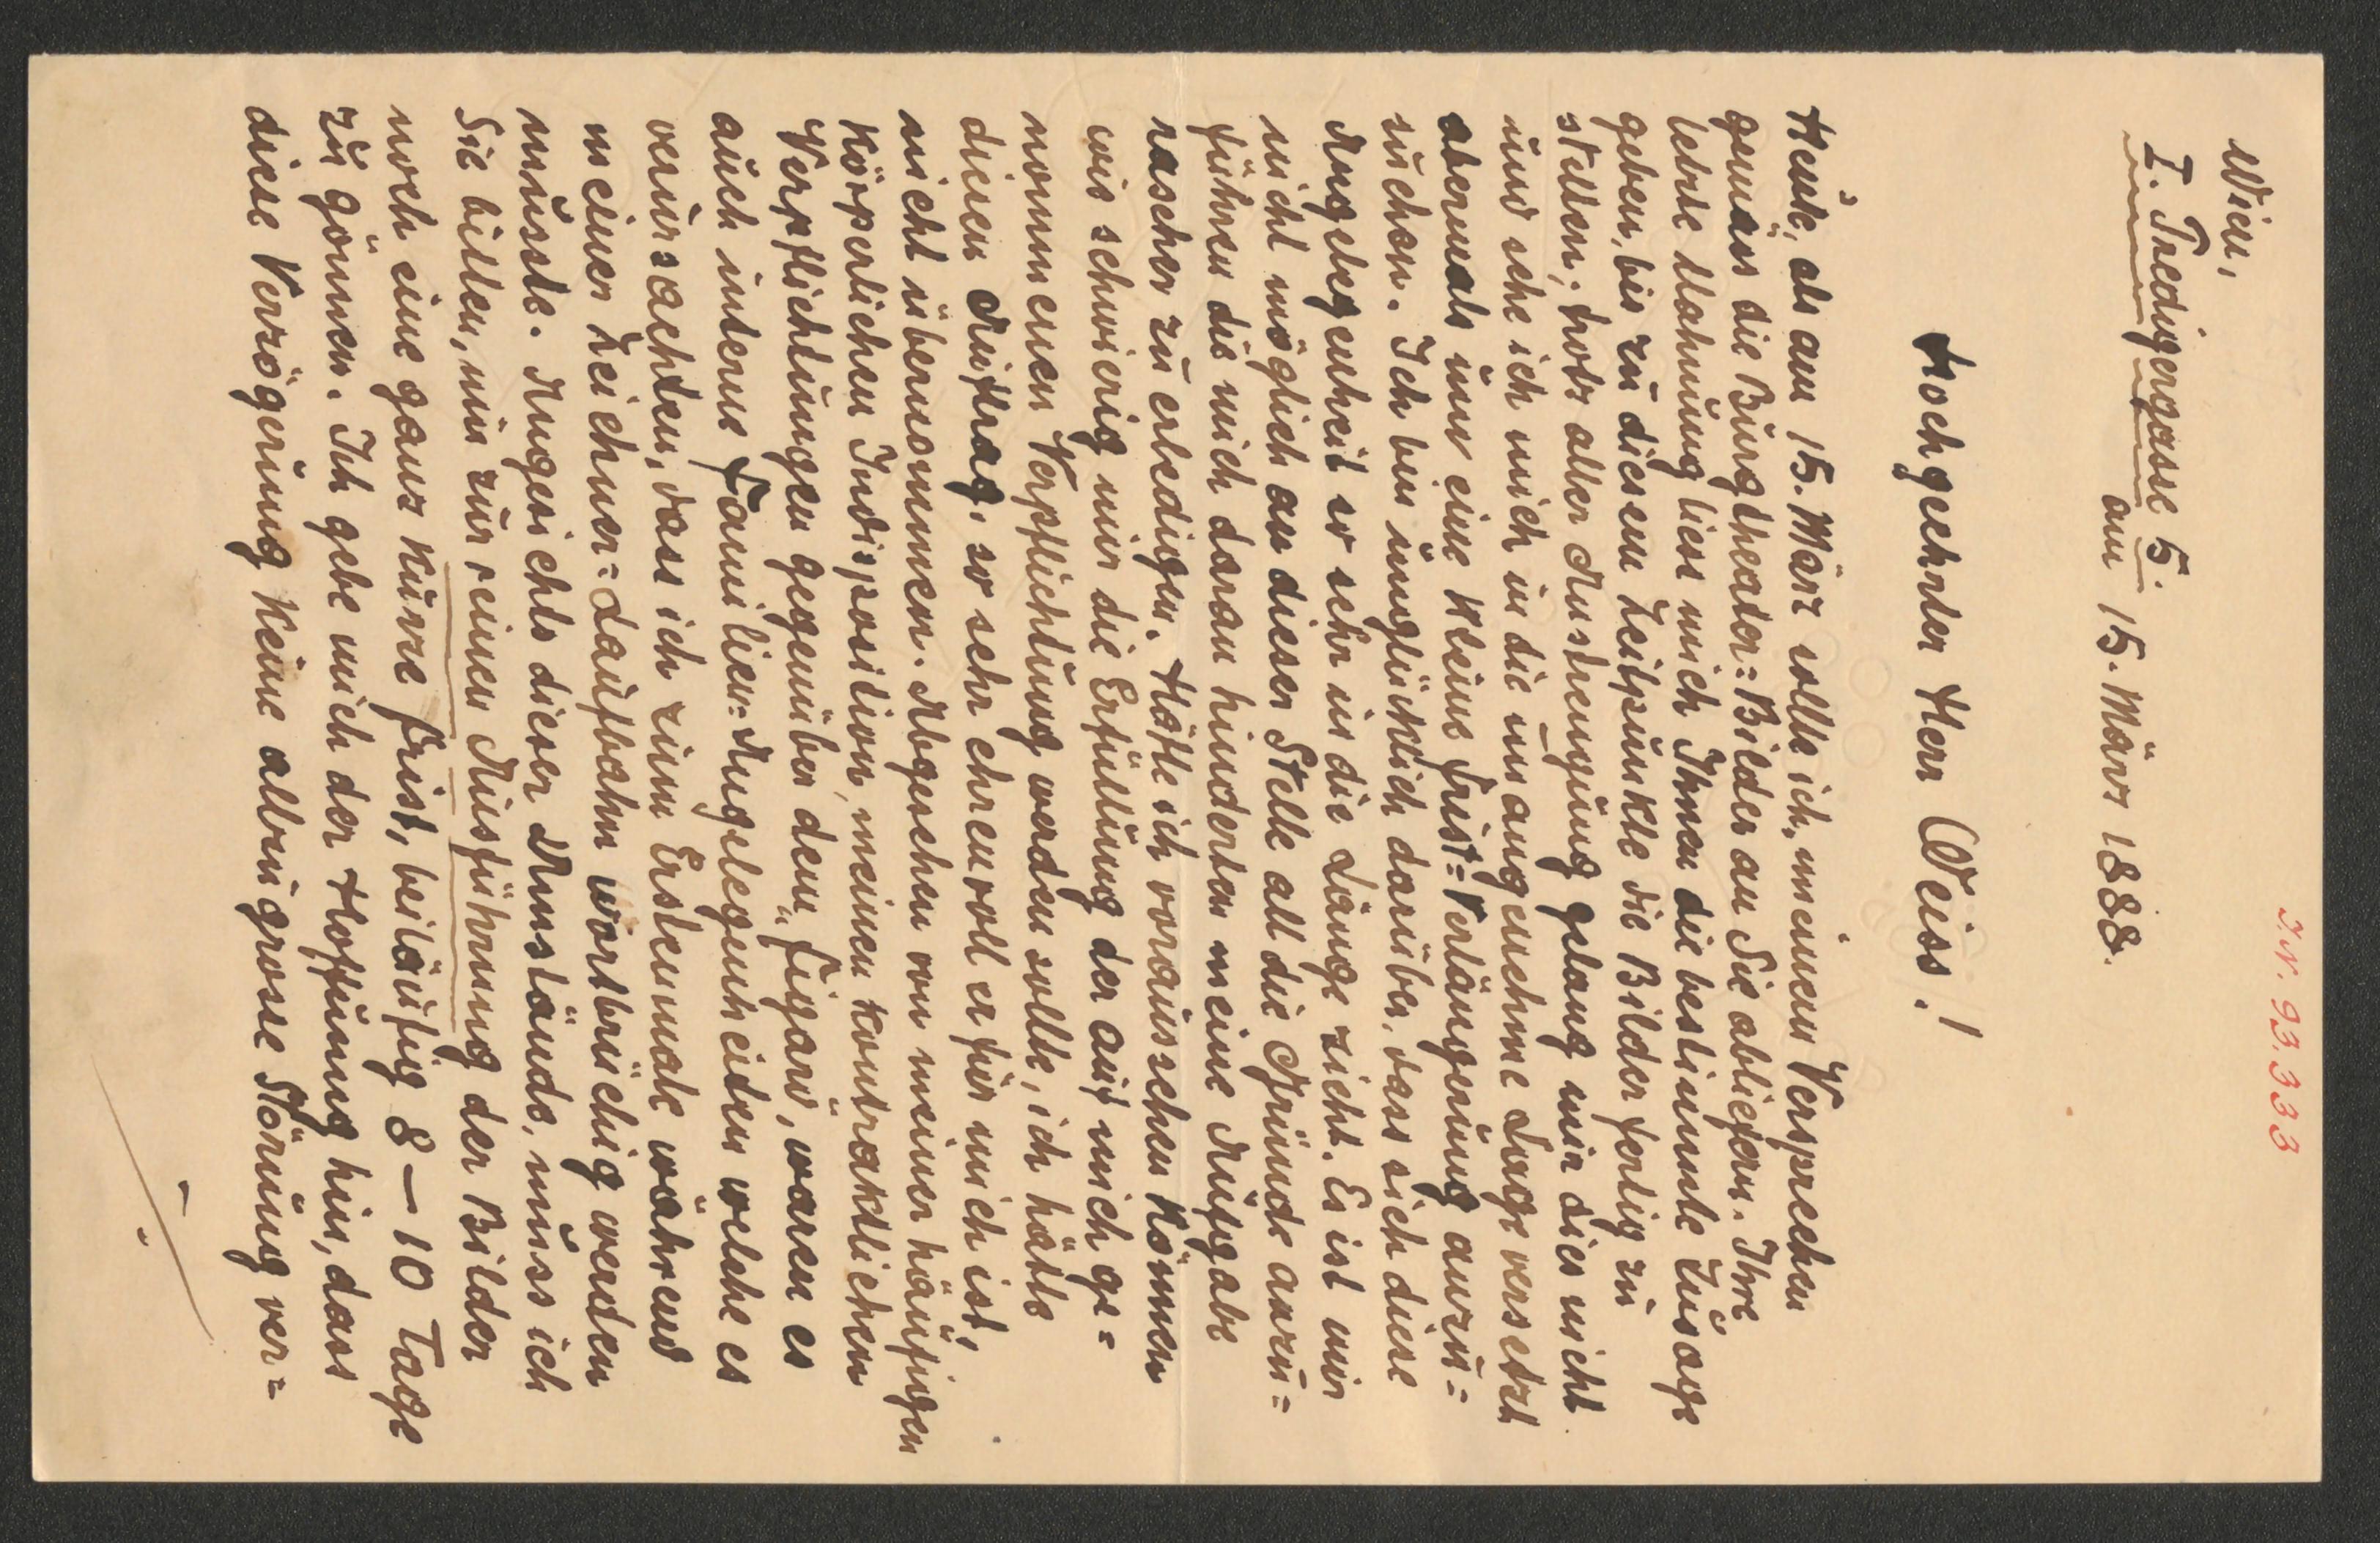 I.N. 93.333
Wien,
I. Predigergasse 5.
am 15. März 1888.
Hochgeehrter Herr Weiss!
Heute, als am 15. März sollte ich, meinem Versprechen
gemäss die Burgtheater=Bilder an Sie abliefern. Ihre
letzte Mahnung liess mich Ihnen die bestimmte Zusage
geben, bis zu diesem Zeitpunkte die Bilder fertig zu
stellen; trotz aller Anstrengung gelang mir dies nicht
und sehe ich mich in die unangenehme Lage versetzt
abermals um eine kleine Frist=Verlängerung anzu=
suchen. Ich bin unglücklich darüber, dass sich diese
Angelegenheit so sehr in die Länge zieht. Es ist mir
nicht möglich an dieser Stelle all die Gründe anzu=
führen die mich daran hinderten meine Aufgabe
rascher zu erledigen. Hätte ich voraussehen können
wie schwierig mir die Erfüllung der auf mich ge=
nommenen Verpflichtung werden sollte, ich hätte
diesen Auftrag, so sehr ehrenvoll er für mich ist,
nicht übernommen. Abgesehen von meiner häufigen
körperlichen Indisposition, meinen kontraktlichen
Verpflichtungen gegenüber dem „Figaro, waren es
auch interne Familien=Angelegenheiten welche es
verursachten, dass ich zum Erstenmale während
meiner Zeichner=Laufbahn wortbrüchig werden
musste. Angesichts dieser Umstände, muss ich
Sie bitten, mir zur reinen Ausführung der Bilder
noch eine ganz kurze Frist, beiläufig 8–10 Tage
zu gönnen. Ich gebe mich der Hoffnung hin, dass
diese Verzögerung keine allzu grosse Störung ver=